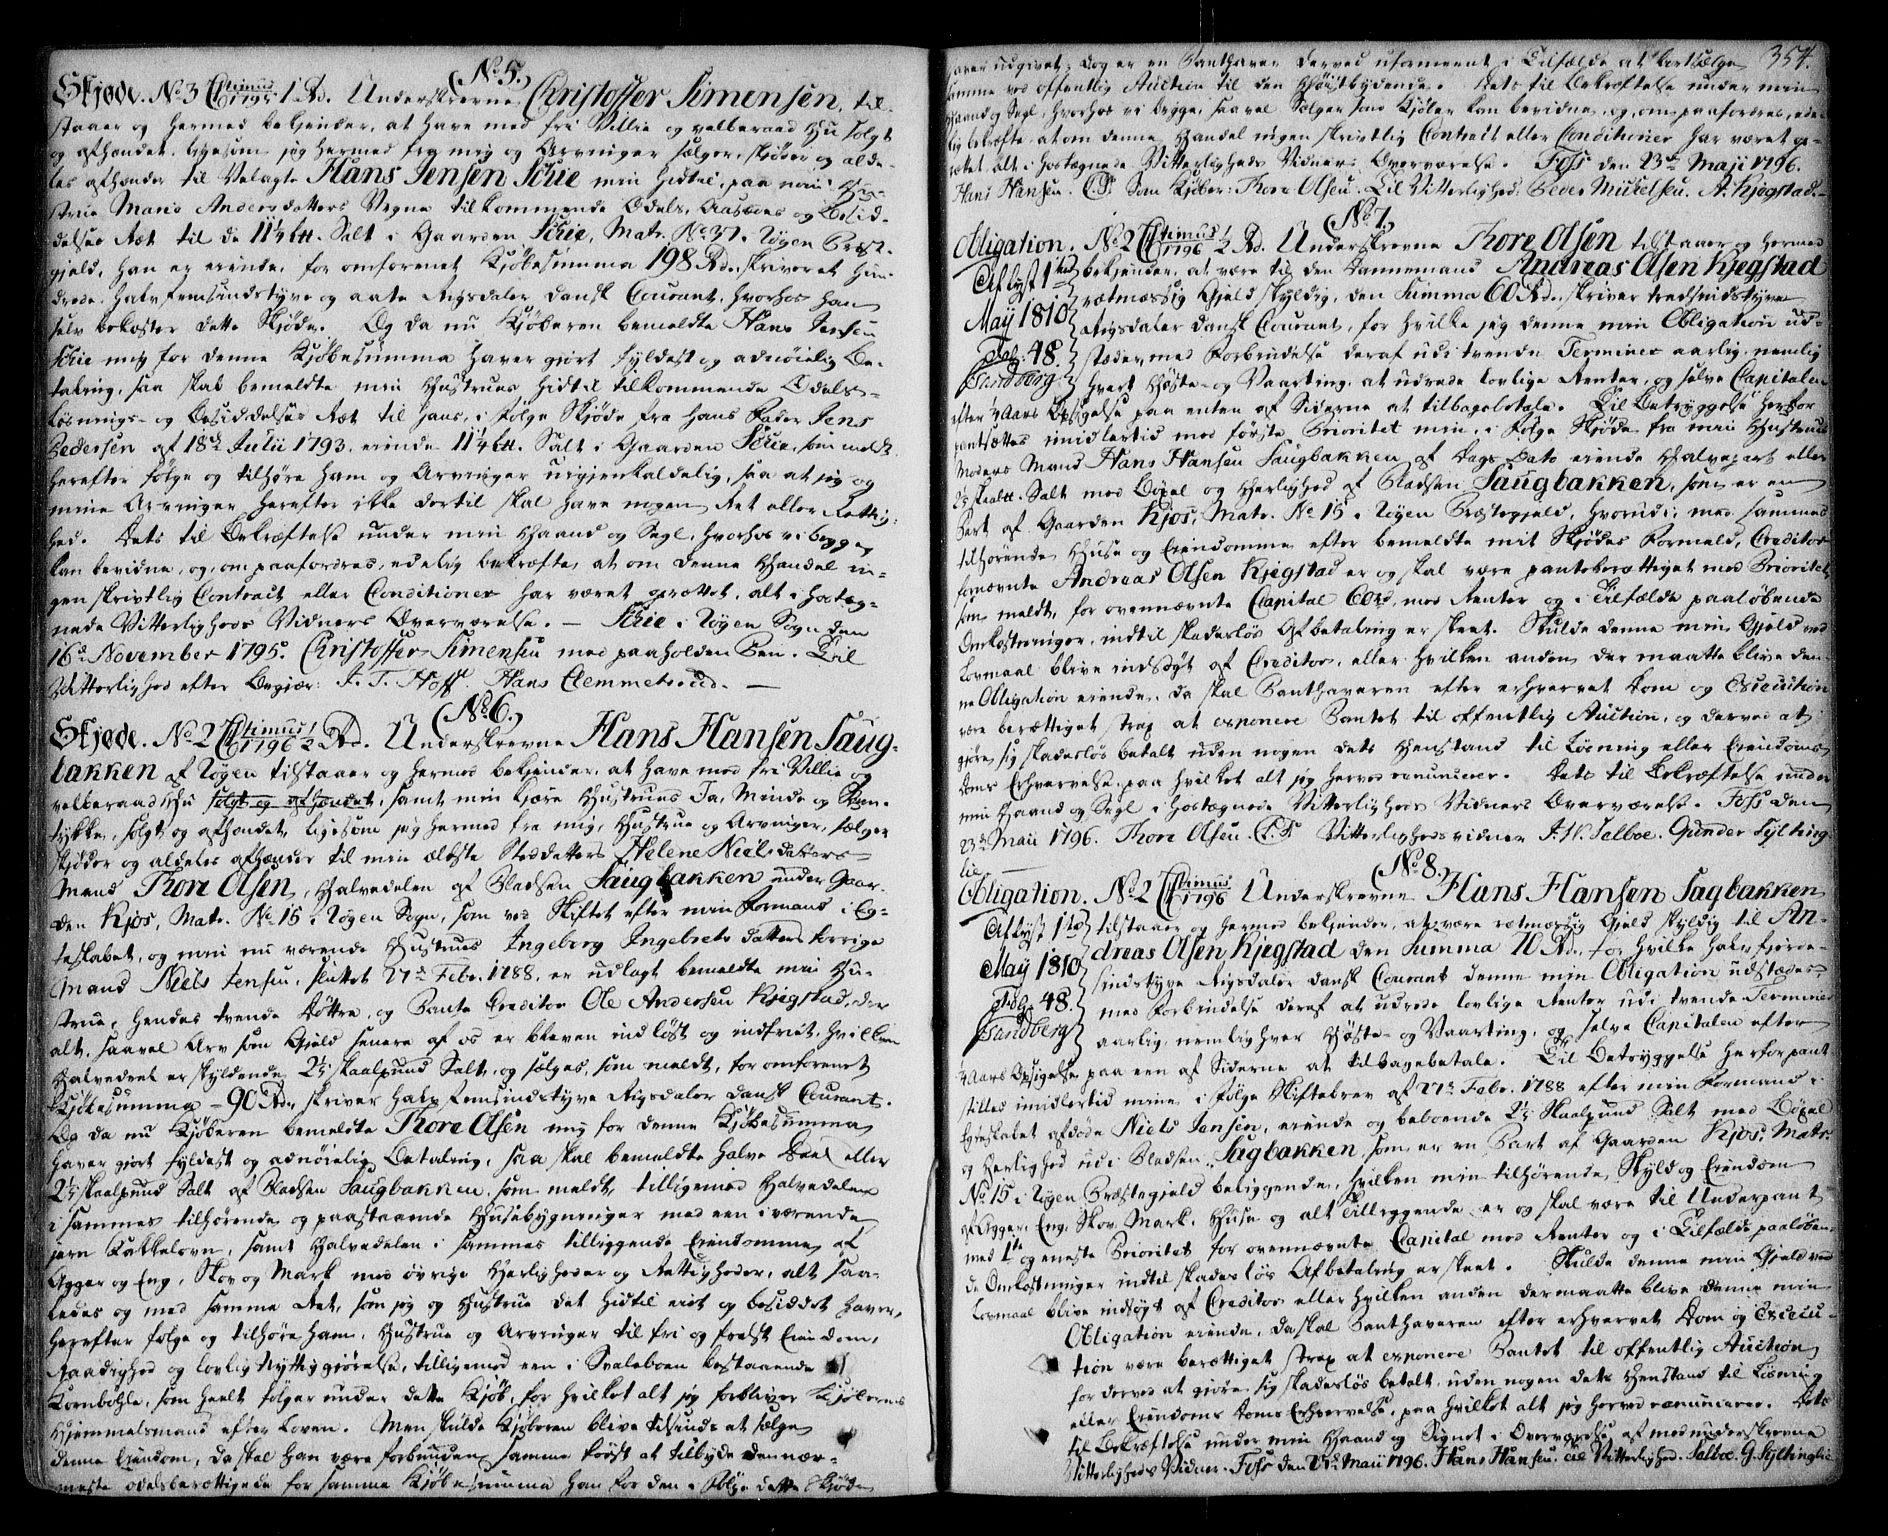 (No. 5.)
Skjøde. No 3 Ctimus 1795. 1 Rd. Underskrevne Christoffer Simensen, til-
staaer og hermed bekjender, at have med frie Villie og velberaad Hu solgt
og afhændet, ligesom jeg hermed fra mig og Arvinger sælger, skjøder og alde-
les afhænder til Velagte Hans Jensen Schie min hidtil, paa min Hu-
strue Marie Anders datters Vegne tilkommende Odels, Aasædes og Besid-
delses Ræt til de 11¼ ℔. Salt i Gaarden Schie, Matr. No 37. i Røgen Præste-
gjeld, han er eiende, for omforenet Kjøbesumma 198 Rd., skriver et Hun-
drede halvfemsindstyve og aate Rigsdaler dansk Courant, hvorhos han
selv bekoster dette Skjøde. Og da nu Kjøberen bemeldte Hans Jensen
Schie mig for denne Kjøbesumma haver gjort fyldest og adnøielig Be-
taling, saa skal bemeldte min Hustrues hidtil tilkommende Odels-
Løsnings- og Besiddelses Ræt til hans, i Følge Skjøde fra hans Fader Jens
Pedersen af 18de Julii 1793. eiende 11¼ ℔. Salt i Gaarden Schie, som meldt
herefter følge og tilhøre ham og Arvinger uigjenkaldelig, saa at jeg og
mine Arvinger herefter ikke dertil skal have nogen Ret eller Rettig-
hed. Dets til Bekræftelse under min Haand og Segl, hvorhos vi begge
kan bevidne, og, om paafordres, edelig bekræfte, at om denne Handel in-
gen skrivtlig Contract eller Conditioner har været oprettet, alt i hostæg-
nede Vitterligheds Vidners Overværelse. — Schie i Røgen Sogn den
16de November 1795. Christoffer Simensen med paaholden Pen. Til
Vitterlighed efter Begjær: J. T. Hoff. Hans Clemmetsrud. —
(No. 6.)
Skjøde. No 2 Ctimus 1796 ½ Rd. Underskrevne Hans Hansen Saug-
bakken af Røgen tilstaaer og hermed bekjender, at have med fri Villie og
velberaad Hu solgt og afhændet, samt min kjære Hustrues Ja, Minde og Sam-
tykke, solgt og afhændet, ligesom jeg hermed fra mig, Hustrue og Arvinger, sælger
skjøder og aldeles afhænder til min ældste Steddatters Helene Niels datters
Mand Thore Olsen, Halvedelen af Pladsen Saugbakken under Gaar-
den Kjos, Matr. No 15 i Røgen Sogn, som ved Skiftet efter min Formand i Eg-
teskabet, og min nu værende Hustrues Ingeborg Ingebrets datters forrige
Mand Niels Jensen, sluttet 27de Febr. 1788, er udlagt bemeldte min Hu-
strue, hendes tvende Døttre, og Pante Creditor Ole Andersen Kjegstad, der
alt, saavel Arv som Gjeld senere af os er bleven indløst og indfriet, hvilken
Halvedeel er skyldende 2½ Skaalpund Salt, og sælges, som meldt, for omforenet
Kjøbesumma - 90 Rd., skriver halvfemsindstyve Rigsdaler dansk Courant.
Og da nu Kjøberen bemeldte Thore Olsen mig for denne Kjøbesumma
haver gjort fyldest og adnøielig Betaling, saa skal bemeldte halve Deel eller
2½ Skaalpund Salt af Pladsen Saugbakken, som meldt, tilligemed Halvedelen
i sammes tilhørende og paastaaende Huusebygninger med een iværende
jern Kakkelovn, samt Halvedelen i sammes tilliggende Eiendomme af
Agger og Eng, Skov og Mark med øvrige Herligheder og Rettigheder, alt saa-
ledes og med samme Ret, som jeg og Hustrue det hidtil eiet og besiddet haver,
herefter følge og tilhøre ham, Hustrue og Arvinger til fri og frelst Eiendom,
Raadighed og lovlig Nyttiggjørelse, tilligemed een i Svaleboen bestaaende
Kornbohle, som heelt følger under dette Kjøb, for hvilket alt jeg forbliver Kjøberens
Hjemmelsmand efter Loven. Men skulde Kjøberen blive tilsinds at sælge
denne Eiendom, da skal han være forbunden samme først at tilbyde den nær-
meste odelsberettigede for samme Kjøbesumma han for den i Følge dette Skjøde
354.
haver udgivet; dog er en Panthaver derved uformeent i Tilfælde at bortsælge
samme ved offentlig Auction til den Høistbydende. Dets til Bekræftelse under min
Haand og Segl, hvorhos vi begge, saavel Sælger som Kjøber kan bevidne, og, om paafordres, ede-
lig bekræfte, at om denne Handel ingen skrivtlig Contract eller Conditioner har været op-
rettet, alt i hostægnede Vitterligheds Vidners Overværelse. Foss den 23de Maji 1796.
Hans Hansen. (L.S.) Som Kjøber: Thore Olsen. Til Vitterlighed: Peder Mickelsen. A. Kjegstad.
(No. 7.)
Obligation. No 2 Ctimus 1796 ½ Rd. Underskrevne Thore Olsen tilstaaer og hermed
Aflyst 1ste May 1810 Fol: 48. Sandberg.
bekjender, at være til den Dannemand Andreas Olsen Kjegstad
rætmæssig Gjeld skyldig, den Summa 60 Rd., skriver tredsindstyve
Rigsdaler dansk Courant, for hvilke jeg denne min Obligation ud-
steder, med Forbindelse deraf udi tvende Terminer aarlig, nemlig
hvert Høste- og Vaarting, at udrede lovlige Renter, og selve Capitalen
efter ¼ Aars Opsigelse paa enten af Siderne at tilbagebetale. Til Betryggelse herfor
pantsættes imidlertid med første Prioritet min, i Følge Skjøde fra min Hustrues
Moders Mand Hans Hansen Saugbakken af Dags Dato eiende Halvepart eller
2½ skaal℔. Salt med Bøxel og Herlighed af Pladsen Saugbakken, som er en
Part af Gaarden Kjos, Matr. No 15 i Røgen Præstegjeld, hvorudi, med sammes
tilhørende Huse og Eiendomme efter bemeldte mit Skjødes Formeld, Creditor
fornævnte Andreas Olsen Kjegstad er og skal være panteberættiget med Prioritet
som meldt, for ovennævnte Capital 60 rd, med Renter og i Tilfælde paaløbende
Omkostninger, indtil skadesløs Afbetaling er skeet. Skulde denne min Gjeld ved
Lovmaal blive indsøgt af Creditor, eller hvilken anden der maatte blive den-
ne Obligation eiende, da skal Panthaveren efter erhvervet Dom og Execution
være berættiget strax at exponere Pantet til offentlig Auction, og derved at
gjøre sig skadesløs betalt uden nogen dets Henstand til Løsning eller Eiendoms
doms Erhvervelse, paa hvilket alt jeg herved renuncierer. Dets til Bekræftelse under
min Haand og Segl i hostægnede Vitterligheds Vidners Overværelse. Foss den
23de Maii 1796. Thore Olsen. (L.S.) Vitterlighedsvidner J. N. Selboe. Gunder Sylting
lie. —
(No. 8.)
Obligation. No 2 Ctimus 1796 Underskrevne Hans Hansen Sagbakken
Aflyst 1ste May 1810 Fol: 48. Sandberg
tilstaaer og hermed bekjender, at være rætmæssig Gjeld skyldig til An-
dreas Olsen Kjegstad den Summa 70 Rd., for hvilke halvfjerde-
sindstyve Rigsdaler dansk Courant denne min Obligation udstædes
med Forbindelse deraf at udrede lovlige Renter udi tvende Terminer
aarlig, nemlig hver Høste- og Vaarting, og selve Capitalen efter
¼ Aars Opsigelse paa een af Siderne at tilbagebetale. Til Betryggelse herfor pant-
stilles imidlertid min i Følge Skiftebrev af 27de Febr. 1788 efter min Formand i
Egteskabet afdøde Niels Jensen, eiende og beboende 2½ Skaalpund Salt med Bøxel
og Herlighed udi Pladsen Sagbakken, som er en Part af Gaarden Kjos, Matr.
No 15 i Røgen Præstegjeld beliggende, hvilken min tilhørende Skyld og Eiendom
af Agger, Eng, Skov, Mark, Huse og alt Tilliggende er og skal være til Underpant
med 1ste og eneste Prioritet for ovennævnte Capital med Renter og i Tilfælde paaløben-
de Omkostninger indtil skadesløs Afbetaling er skeet. Skulde denne min Gjeld ved
Lovmaal blive indsøgt af Creditor eller hvilken anden der maatte blive denne min
Obligation eiende, da skal Panthaveren efter erhvervet Dom og Execu-
tion være berættiget strax at exponere Pantet til offentlig Auction
for derved at gjøre sig skadesløs betalt, uden nogen dets Henstand til Løsning
eller Eiendoms Doms Erhvervelse, paa hvilket alt jeg herved renuncierer. Dets
til Bekræftelse under min Haand og Signet i Overværelse af medunderskrevne
Vitterligheds Vidner. Foss den 23de Maii 1796. Hans Hansen. Til Vitterlighed. Selboe. G. Syltinglie